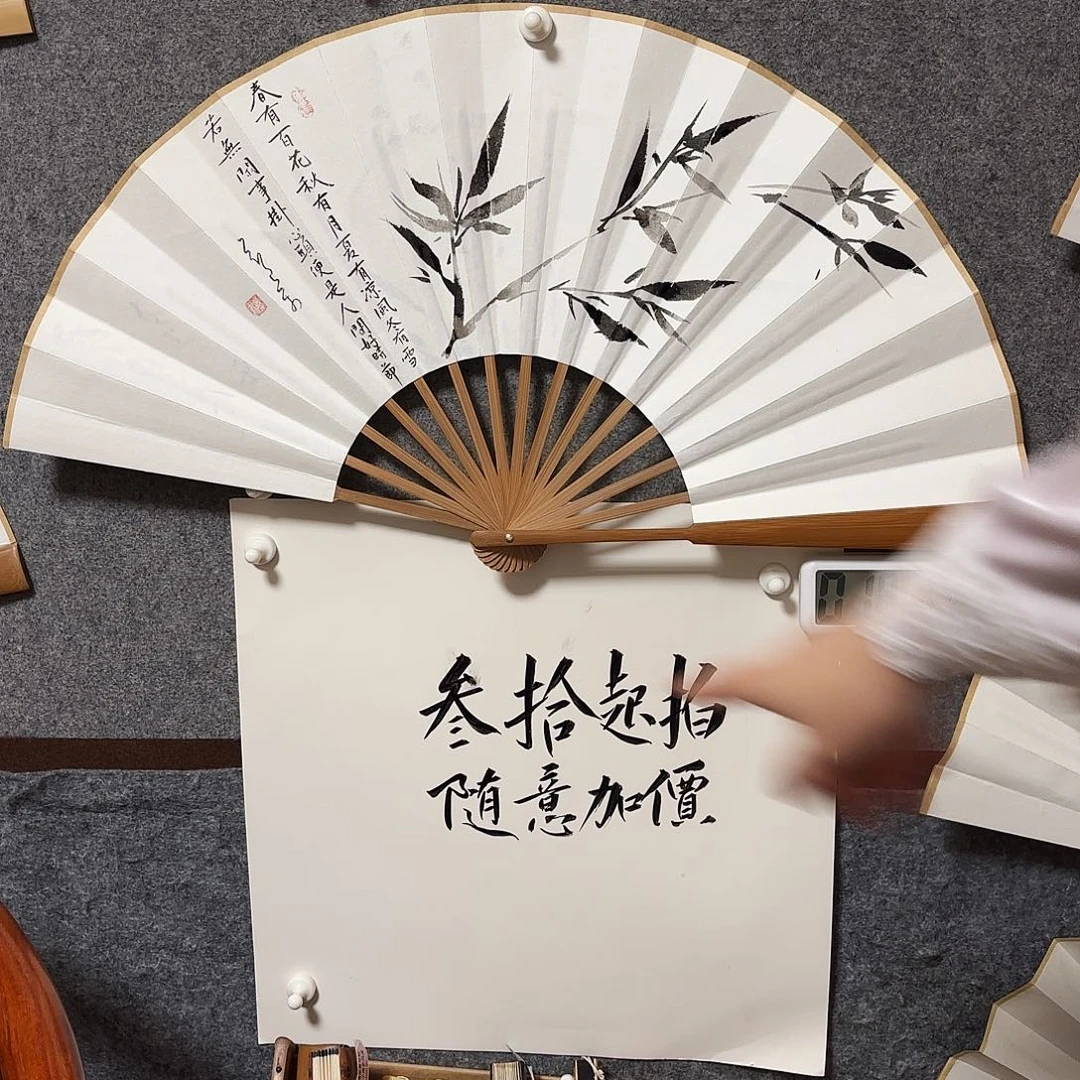 春有百花秋有月夏有涼風冬有雪
若無閒事掛心頭便是人間好時節
叁拾起拍
隨意加價